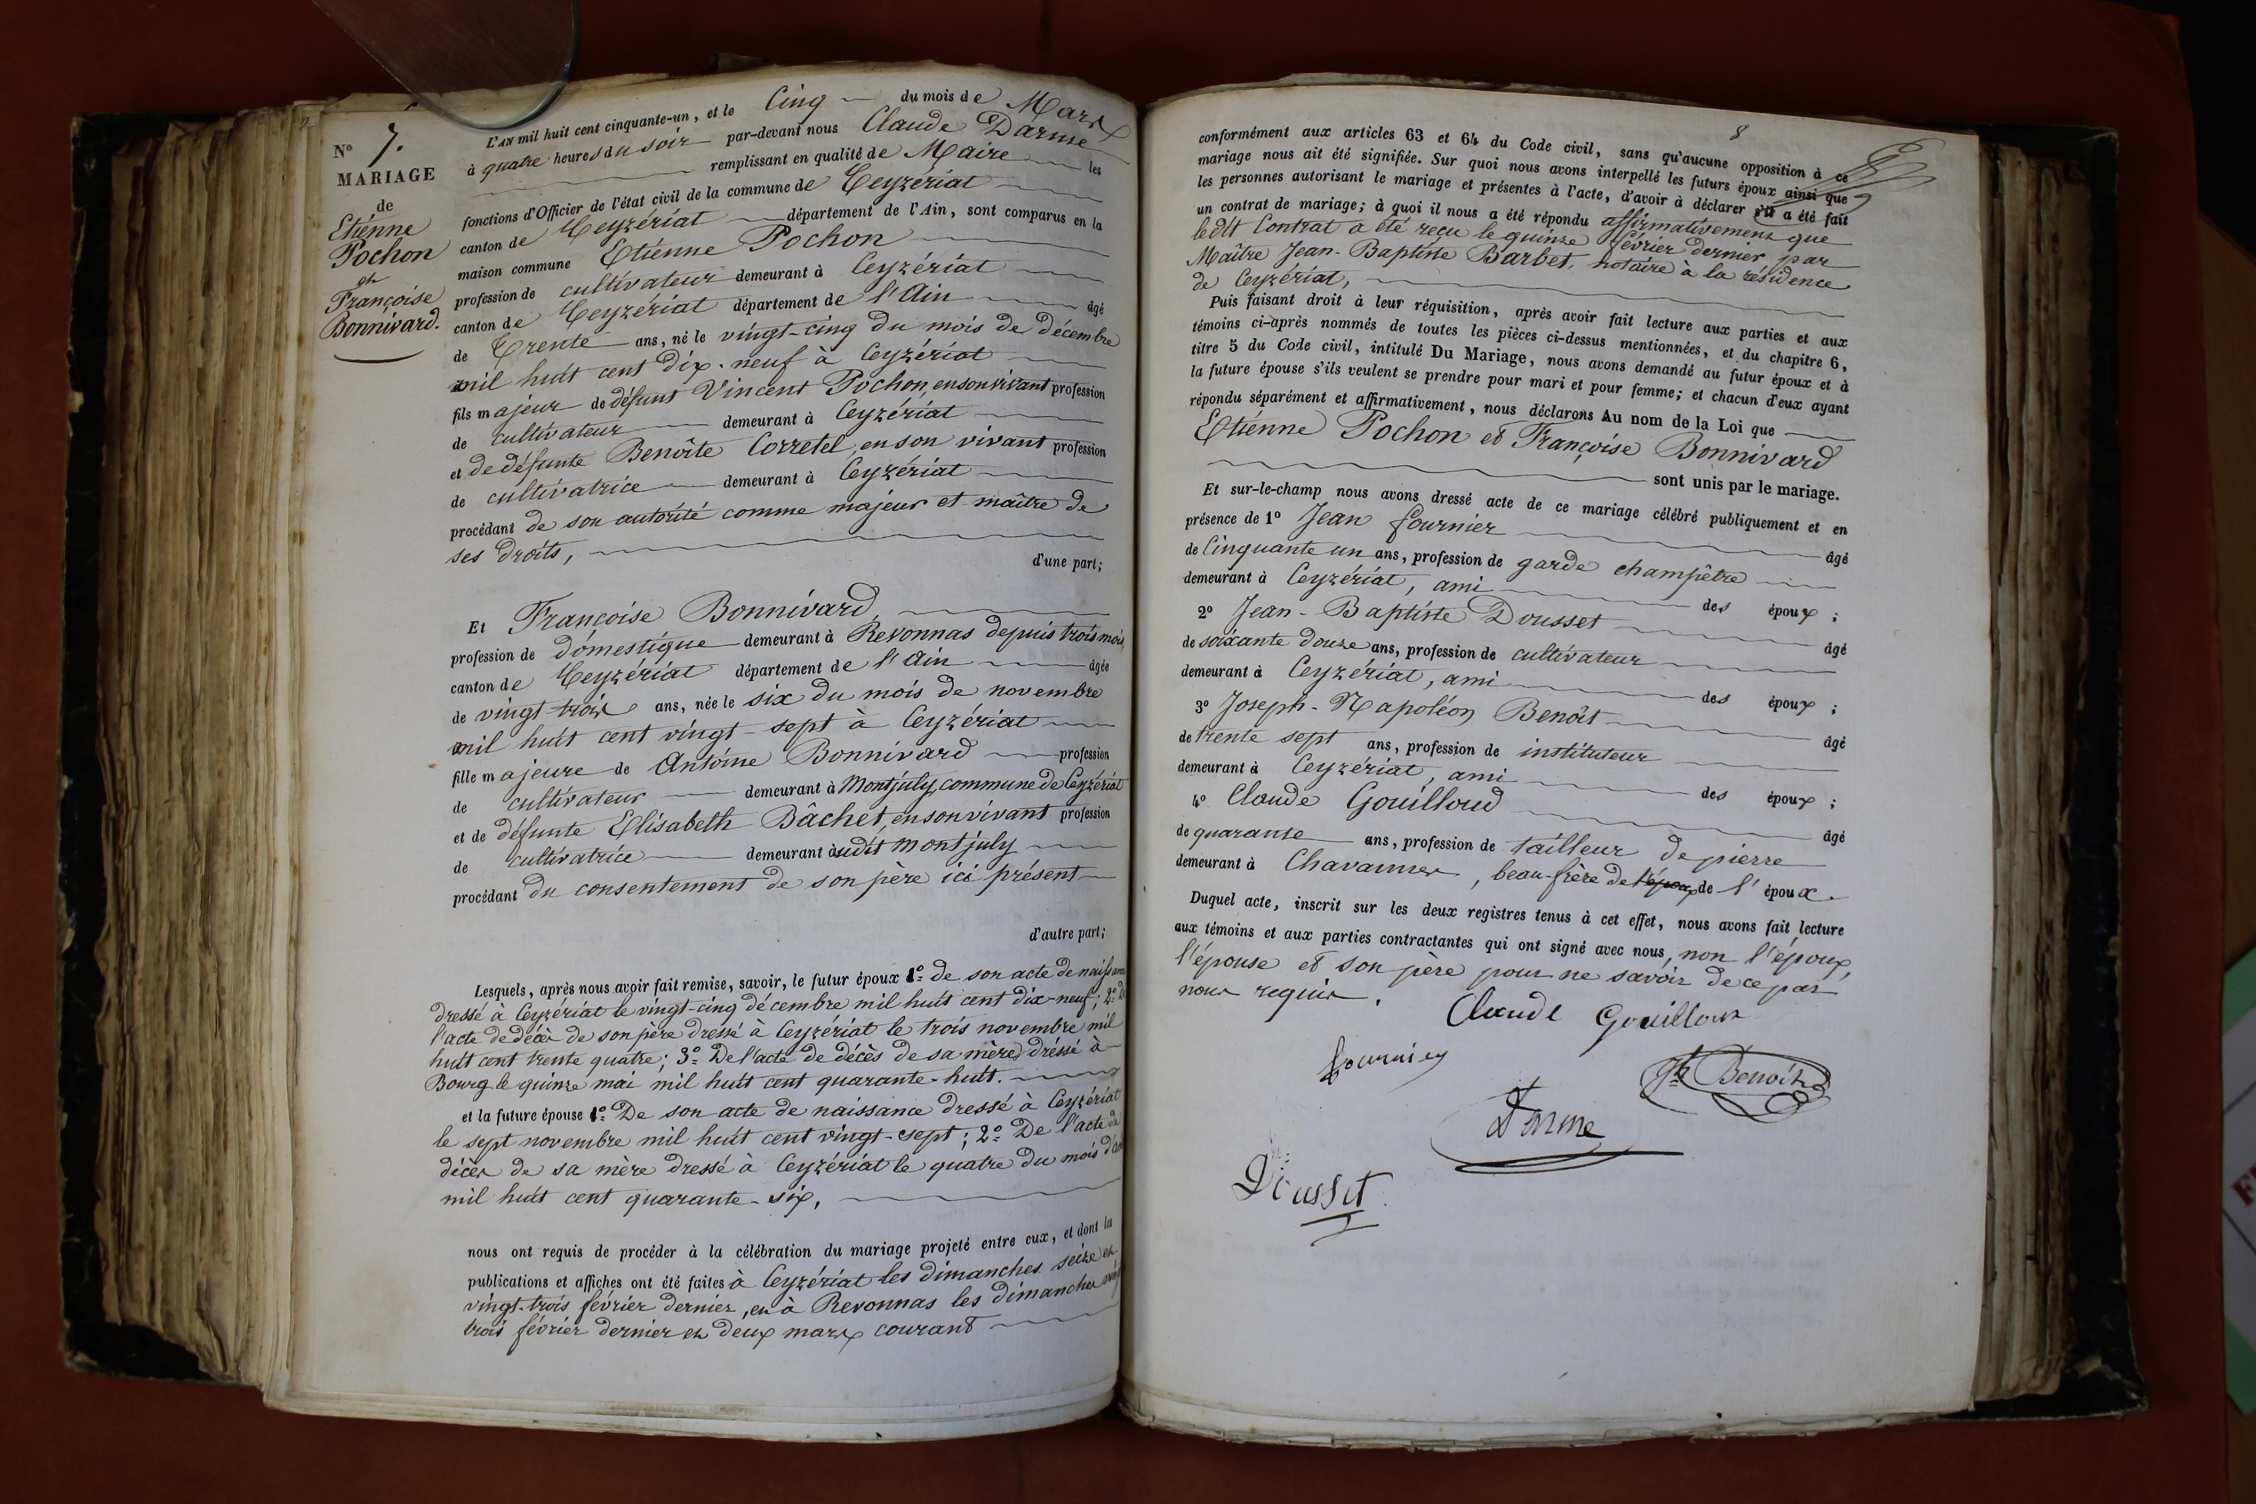 N° 7.
MARIAGE
de
Etiénne
Pochon
et
Françoise
Bonnivard.
L'AN mil huit cent cinquante-un, et le Cinq du mois de Mars
à quatre heures du soir par-devant nous Claude Darme
remplissant en qualité de Maire les
fonctions d'Officier de l'état civil de la commune de Ceyzériat
canton de Ceyzériat département de l'Ain, sont comparus en la
maison commune Etiénne Pochon
profession de cultivateur demeurant à Ceyzériat
canton de Ceyzériat département de l'Ain âgé
de Trente ans, né le vingt-cinq du mois de décembre
mil huit cent dix-neuf à Ceyzériat
fils majeur de défunt Vincent Pochon, en son vivant profession
de cultivateur demeurant à Ceyzériat
et de défunte Benoîte Corretel, en son vivant profession
de cultivatrice demeurant à Ceyzériat
procédant de son autorité comme majeur et maître de
ses droits,
d'une part;
Et Françoise Bonnivard,
profession de domestique demeurant à Revonnas depuis trois mois,
canton de Ceyzériat département de l'Ain âgée
de vingt-trois ans, née le six du mois de novembre
mil huit cent vingt-sept à Ceyzériat
fille majeure de Antoine Bonnivard profession
de cultivateur demeurant à Montjuly, commune de Ceyzériat
et de défunte Elisabeth Bâchet, en son vivant profession
de cultivatrice demeurant à sudit Montjuly
procédant du consentement de son père ici présent
d'autre part;
Lesquels, après nous avoir fait remise, savoir, le futur époux 1° de son acte de naissance
dressé à Ceyzériat le vingt-cinq décembre mil huit cent dix-neuf; 2° De
l'acte de décès de son père dressé à Ceyzériat le trois novembre mil
huit cent trente quatre; 3° De l'acte de décès de sa mère dréssé à
Bourg le quinze mai mil huit cent quarante-huit.
et la future épouse 1° De son acte de naissance dressé à Ceyzériat
le sept novembre mil huit cent vingt-sept; 2° De l'acte de
décès de sa mère dressé à Ceyzériat le quatre du mois
mil huit cent quarante-six,
nous ont requis de procéder à la célébration du mariage projeté entre eux, et dont la
publications et affiches ont été faites à Ceyzériat les dimanches seize et
vingt-trois février dernier, et à Revonnas les dimanches vingt
trois février dernier et deux mars courant
8
conformément aux articles 63 et 64 du Code civil, sans qu'aucune opposition à ce
mariage nous ait été signifiée. Sur quoi nous avons interpellé les futurs époux ainsi que
les personnes autorisant le mariage et présentes à l'acte, d'avoir à déclarer s'il a été fait
un contrat de mariage; à quoi il nous a été répondu affirmativement que
le dit Contrat a été reçu le quinze février dernier par
Maître Jean-Baptiste Barbet, notaire à la résidence
de Ceyzériat,
Puis faisant droit à leur réquisition, après avoir fait lecture aux parties et aux
témoins ci-après nommés de toutes les pièces ci-dessus mentionnées, et du chapitre 6,
titre 5 du Code civil, intitulé Du Mariage, nous avons demandé au futur époux et à
la future épouse s'ils veulent se prendre pour mari et pour femme; et chacun d'eux ayant
répondu séparément et affirmativement, nous déclarons Au nom de la Loi que
Etiénne Pochon et Françoise Bonnivard
sont unis par le mariage.
Et sur-le-champ nous avons dressé acte de ce mariage célébré publiquement et en
présence de 1° Jean Fournier
âgé
de Cinquante un ans, profession de garde champêtre
demeurant à Ceyzériat, ami des époux;
2° Jean-Baptiste Dousset
âgé
de soixante douze ans, profession de cultivateur
demeurant à Ceyzériat, ami des époux;
3° Joseph-Napoléon Benoît
âgé
de trente sept ans, profession de instituteur
demeurant à Ceyzériat, ami des époux;
4° Claude Gouilloud
âgé
de quarante ans, profession de tailleur de pierre
demeurant à Chavannes, beau-frère de l'époux de l'époux.
Duquel acte, inscrit sur les deux registres tenus à cet effet, nous avons fait lecture
aux témoins et aux parties contractantes qui ont signé avec nous, non l'époux,
l'épouse et son père pour ne savoir de ce par
nous requis.
Claude Gouilloux
fournier
Jh Benoît
Darme
Dousset